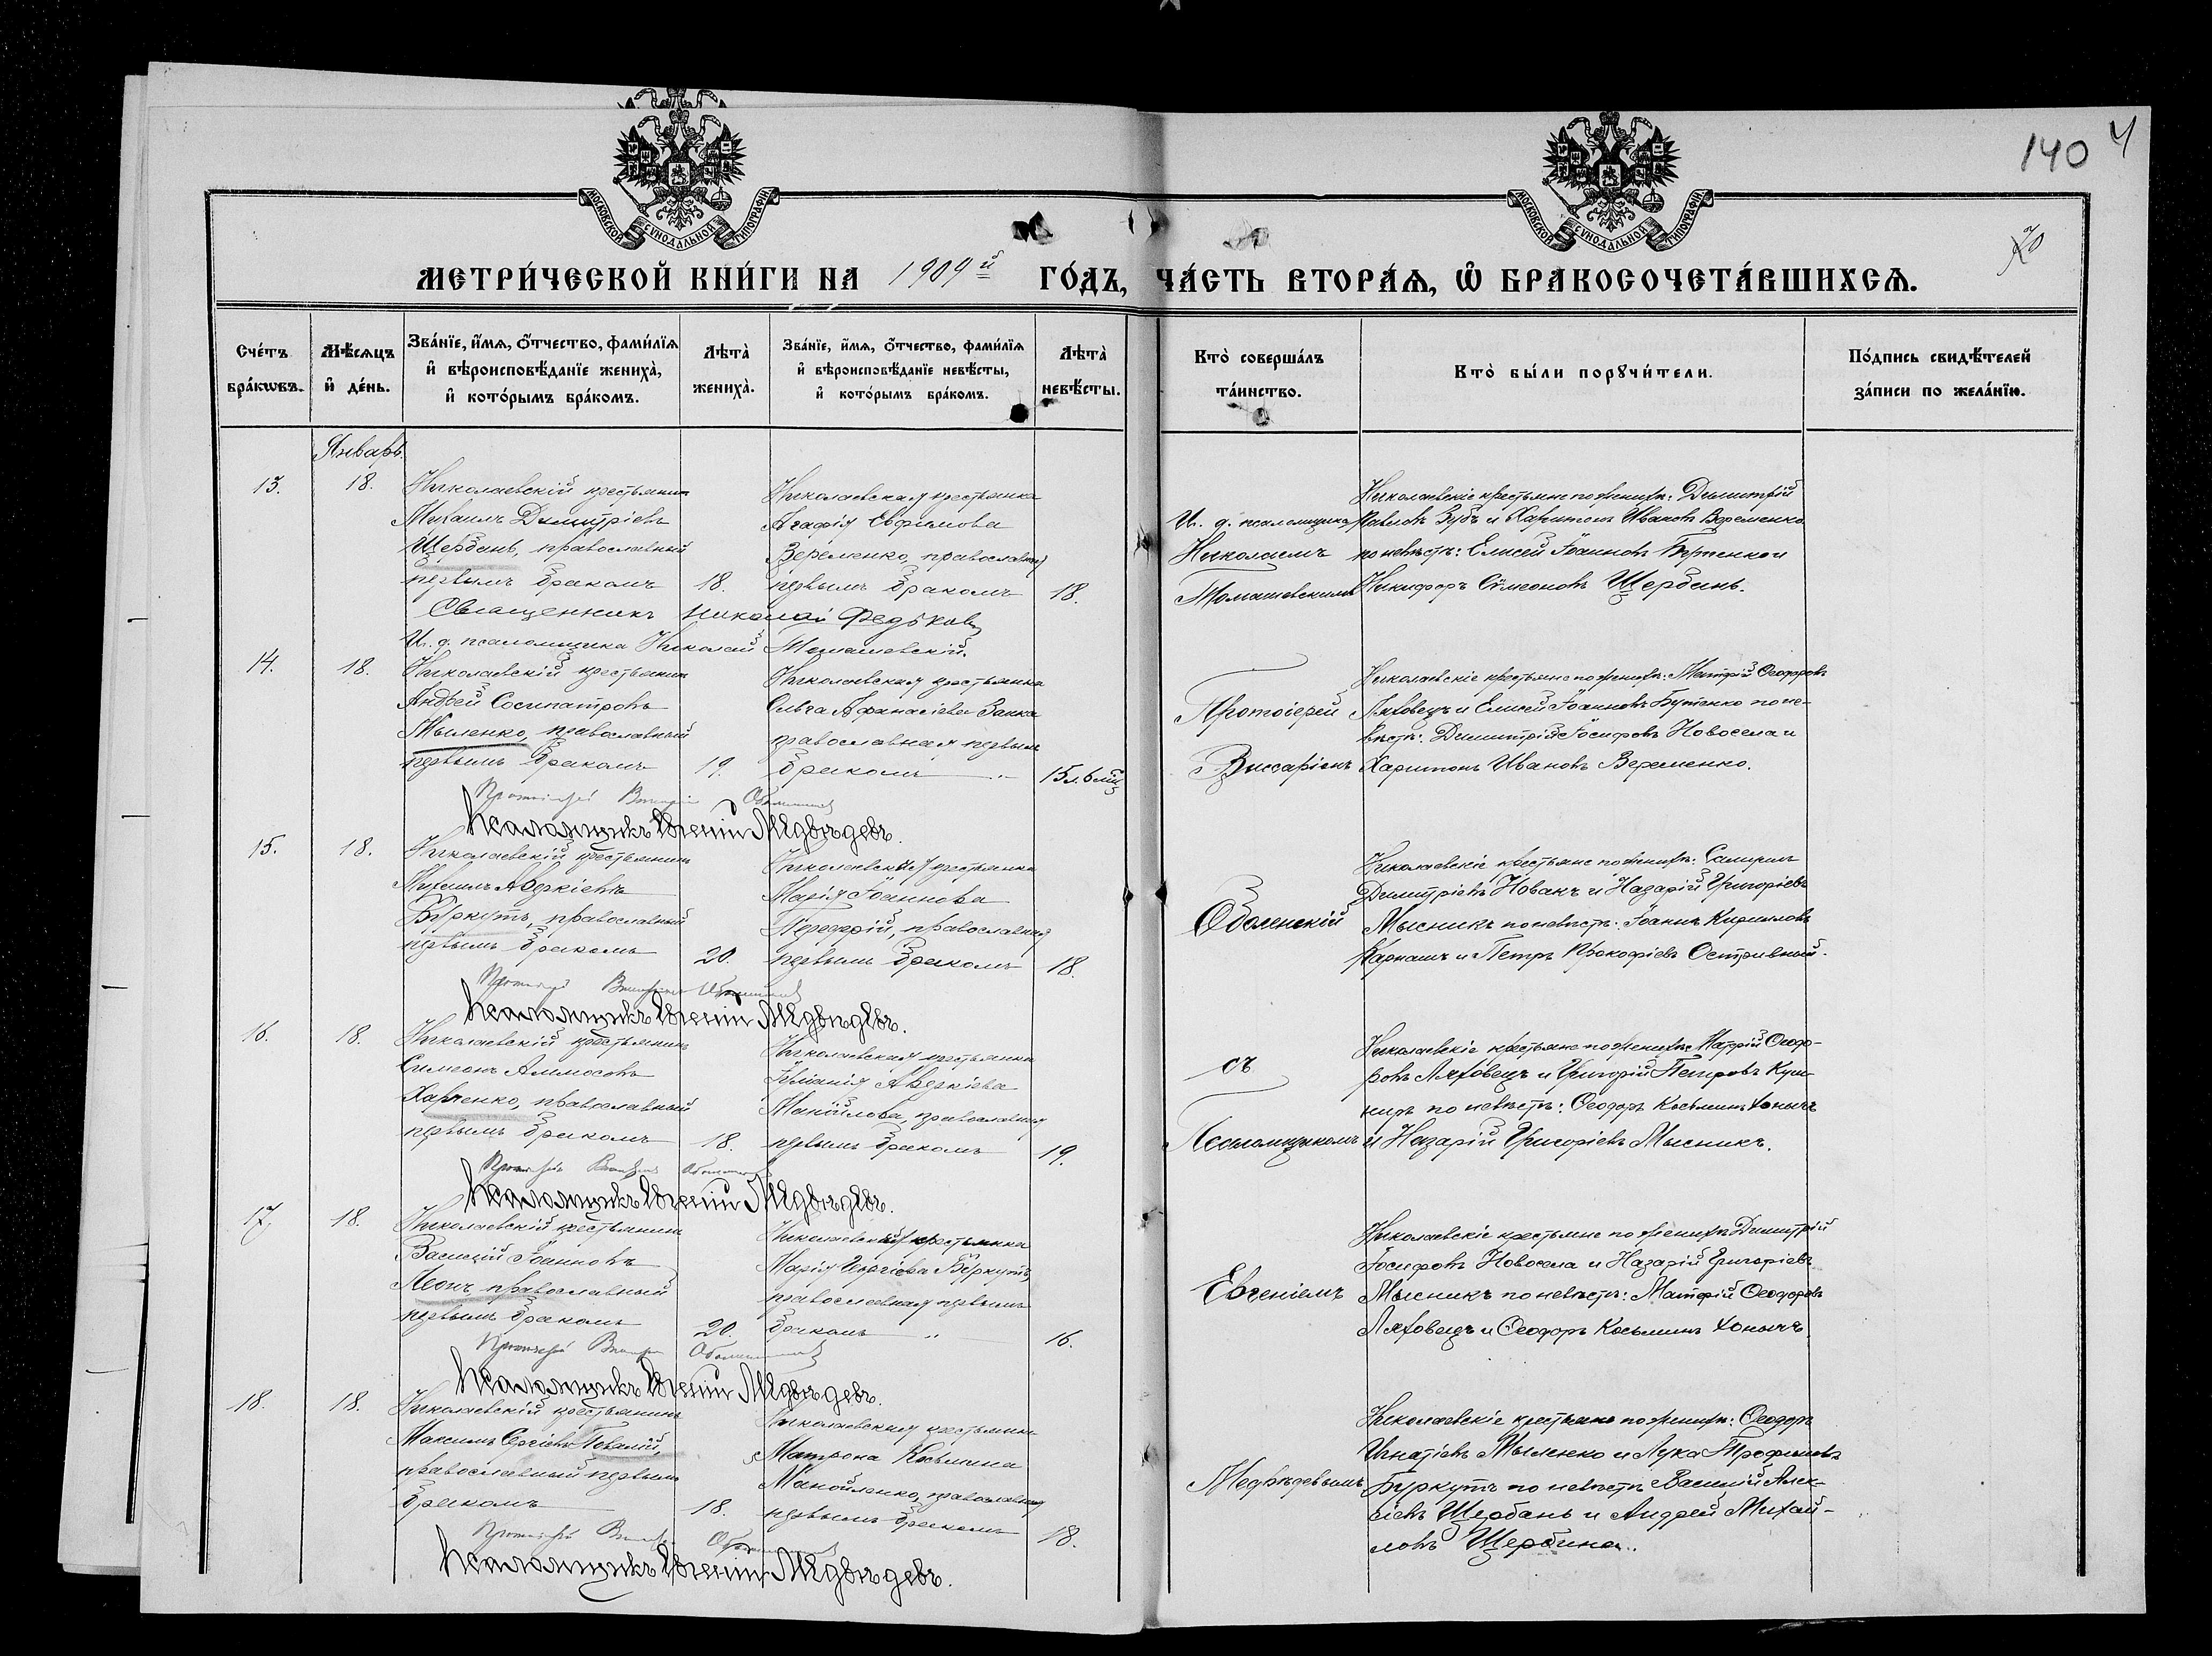 140 4
70
МОСКОВСКОЙ СѴНОДАЛЬНОЙ ТИПОГРАФІИ
МОСКОВСКОЙ СѴНОДАЛЬНОЙ ТИПОГРАФІИ
МЕТРИ́ЧЕСКОЙ КНИ́ГИ НА 1909й ГО́ДЪ, ЧА́СТЬ ВТОРА́Ѧ, Ѽ БРАКОСОЧЕТА́ВШИХСѦ.
Сче́тъ бра́кѡвъ.
Мѣ́сяцъ и҆ де́нь.
Зва́нїе, и҆́мѧ, ѻ҆́тчество, фами́лїѧ и҆ вѣроисповѣ́данїе жениха̀, и҆ кото́рымъ бра́комъ.
Лѣта̀ жениха̀.
Зва́нїе, и҆́мѧ, ѻ҆́тчество, фами́лїѧ и҆ вѣроисповѣ́данїе невѣ́сты, и҆ кото́рымъ бра́комъ.
Лѣта̀ невѣ́сты.
Кто̀ соверша́лъ та́инство.
Кто̀ бы́ли порꙋчи́тели.
По́дпись свидѣ́телей за́писи по жела́нїю.
Январь.
13.
18.
Николаевскій крестьянинъ
Михаилъ Димитріевъ
Щербань, православный
первымъ бракомъ
18.
Николаевская крестьянка
Агафія Евфимова
Веременко, православная
первымъ бракомъ
18.
И. д. псаломщика
Николаемъ
Томашевскимъ
Николаевскіе крестьяне по женихѣ: Димитрій
Павловъ Зубъ и Харитонъ Ивановъ Веременко
по невѣстѣ: Елисей Іоанновъ Бутенко и
Никифоръ Симеоновъ Щербань.
Священникъ Николай Федьковъ
И. д. псаломщика Николай Томашевскій.
14.
18.
Николаевскій крестьянинъ
Андрей Сосипатровъ
Мыленко, православный
первымъ бракомъ
19.
Николаевская крестьянка
Ольга Афанасіева Заика
православная первымъ
бракомъ
15 л. 6 мѣс
Протоіерей
Виссаріонъ
Николаевскіе крестьяне по женихѣ: Матфій Ѳеодоровъ
Ляховецъ и Елисей Іоанновъ Бутенко по не-
вѣстѣ: Димитрій Іосифовъ Новосела и
Харитонъ Ивановъ Веременко.
Протоіерей Виссаріонъ Оболенскій
Псаломщикъ Евгеній Медвѣдевъ.
15.
18.
Николаевскій крестьянинъ
Михаилъ Аверкіевъ
Буркутъ, православный
первымъ бракомъ
20.
Николаевская крестьянка
Марія Іоаннова
православная
первымъ бракомъ
18.
Оболенскій
Николаевскіе крестьяне по женихѣ:
Димитріевъ Новакъ и Назарій Григоріевъ
Мысникъ по невѣстѣ: Іоаннъ Кирилловъ
Карнашъ и Петръ Прокофіевъ Остривный.
Протоіерей Виссаріонъ Оболенскій
Псаломщикъ Евгеній Медвѣдевъ.
16.
18.
Николаевскій крестьянинъ
Симеонъ Аммосовъ
Харченко, православный
первымъ бракомъ
18.
Николаевская крестьянка
Іуліанія Аверкіева
Манойлова, православная
первымъ бракомъ
19.
съ
Псаломщикомъ
Николаевскіе крестьяне по женихѣ: Матфій Ѳеодо-
ровъ Ляховецъ и Григорій Петровъ Куш-
ниръ по невѣстѣ: Ѳеодоръ Косьминъ Хоничъ
и Назарій Григоріевъ Мысникъ.
Протоіерей Виссаріонъ Оболенскій
Псаломщикъ Евгеній Медвѣдевъ.
17.
18.
Николаевскій крестьянинъ
Василій Іоанновъ
Леонъ, православный
первымъ бракомъ
20.
Николаевская крестьянка
Марія Георгіева Буркутъ
православная первымъ
бракомъ
16.
Евгеніемъ
Николаевскіе крестьяне по женихѣ Димитрій
Іосифовъ Новосела и Назарій Григоріевъ
Мысникъ по невѣстѣ: Матфій Ѳеодоровъ
Ляховецъ и Ѳеодоръ Косьминъ Хоничъ.
Протоіерей Виссаріонъ Оболенскій
Псаломщикъ Евгеній Медвѣдевъ.
18.
18.
Николаевскій крестьянинъ
Максимъ Сергіевъ Повалій,
православный первымъ
бракомъ
18.
Николаевская крестьянка
Матрона Косьмина
Манойленко, православная
первымъ бракомъ
18.
Медвѣдевымъ
Николаевскіе крестьяне по женихѣ: Ѳеодоръ
Игнатіевъ Мыленко и Лука Трофимовъ
Буркутъ по невѣстѣ Василій Алек-
сіевъ Щербань и Андрей Михай-
ловъ Щербина.
Протоіерей Виссаріонъ Оболенскій
Псаломщикъ Евгеній Медвѣдевъ.